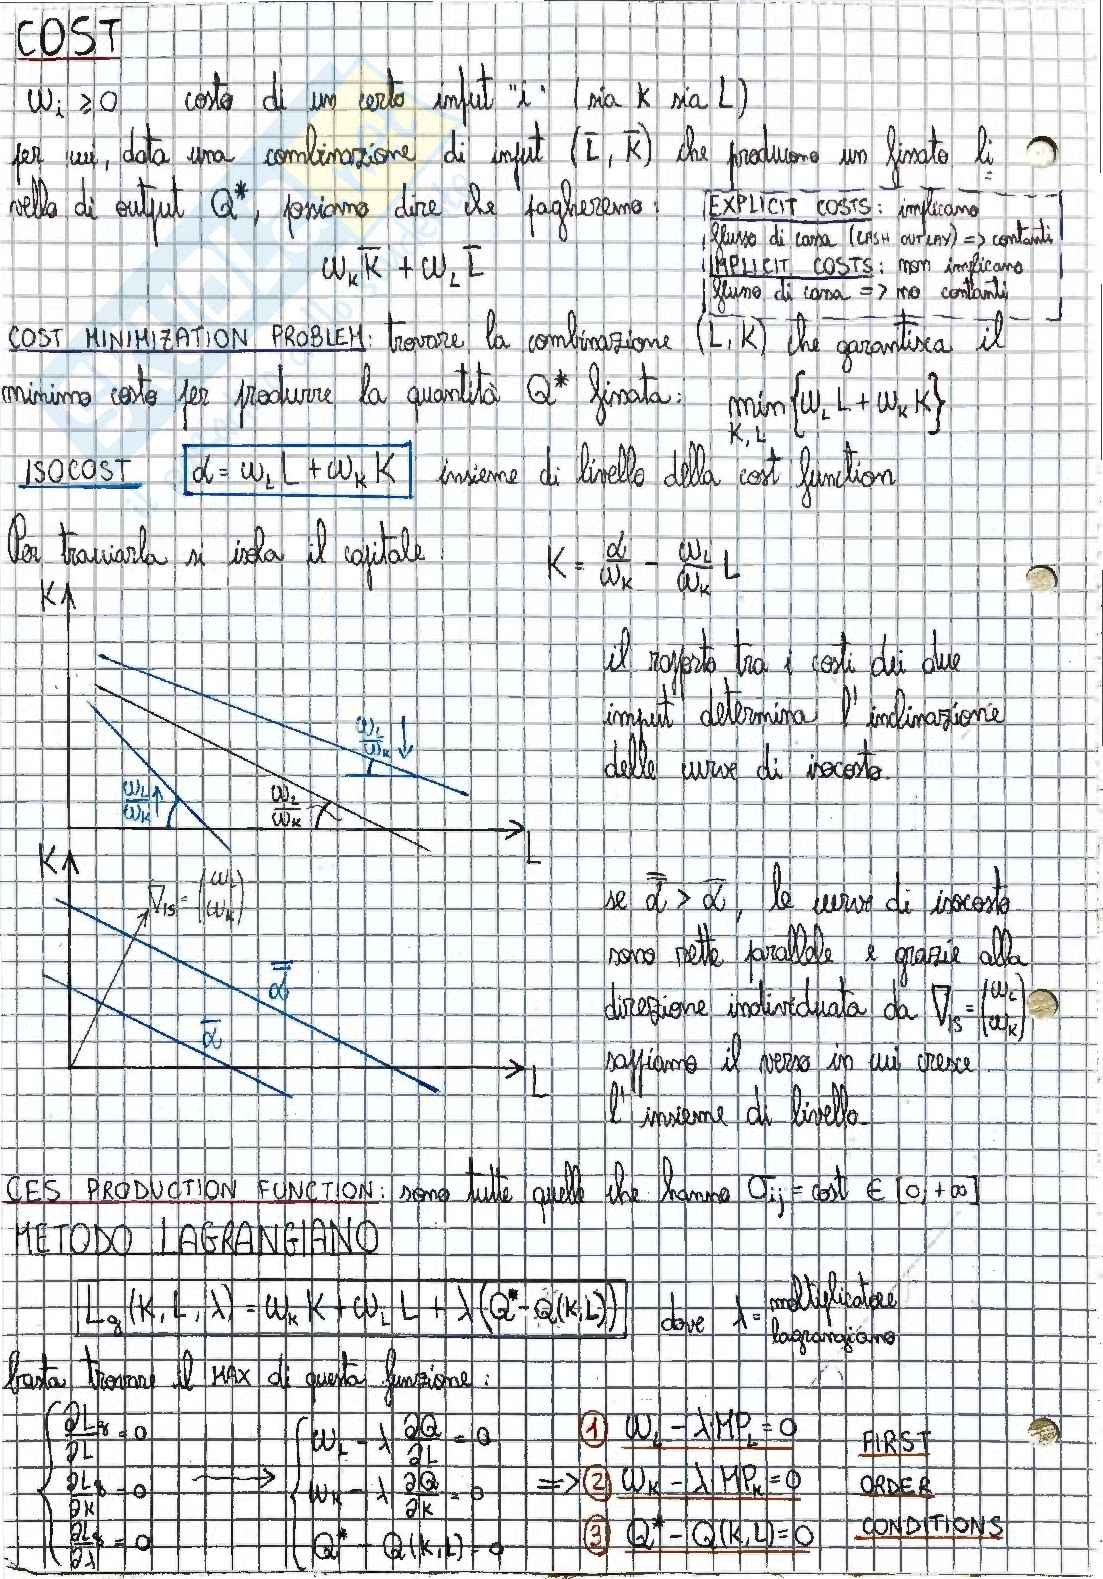 COST
ωi ≥ 0 costo di un certo input "i" (sia K sia L)
per cui, data una combinazione di input (L̄, K̄) che producono un fissato li
vello di output Q*, possiamo dire che pagheremo:
ωK K̄ + ωL L̄
EXPLICIT COSTS: implicano
flusso di cassa (CASH OUTLAY) => contanti
IMPLICIT COSTS: non implicano
flusso di cassa => no contanti
COST MINIMIZATION PROBLEM: trovare la combinazione (L, K) che garantisca il
minimo costo per produrre la quantità Q* fissata: min {ωL L + ωK K}
K, L
ISOCOST α = ωL L + ωK K insieme di livello della cost function
Per tracciarla si isola il capitale: K = α/ωK - ωL/ωK L
K
ωL/ωK ↓
ωL/ωK ↑
ωL/ωK
L
il rapporto tra i costi dei due
input determina l'inclinazione
delle curve di isocosto.
K
∇IS = (ωL ωK)
α̿
ᾱ
L
se α̿ > ᾱ, le curve di isocosto
sono rette parallele e grazie alla
direzione individuata da ∇IS = (ωL ωK)
sappiamo il verso in cui cresce
l'insieme di livello.
CES PRODUCTION FUNCTION: sono tutte quelle che hanno σij = cost ∈ [0, +∞]
METODO LAGRANGIANO
Lg (K, L, λ) = ωK K + ωL L + λ(Q* - Q(K,L)) dove λ = moltiplicatore
lagrangiano
basta trovare il MAX di questa funzione:
∂Lg/∂L = 0 → ωL - λ ∂Q/∂L = 0 => ① ωL - λMPL = 0 FIRST
∂Lg/∂K = 0 ωK - λ ∂Q/∂K = 0 ② ωK - λMPK = 0 ORDER
∂Lg/∂λ = 0 Q* - Q(K,L) = 0 ③ Q* - Q(K,L) = 0 CONDITIONS